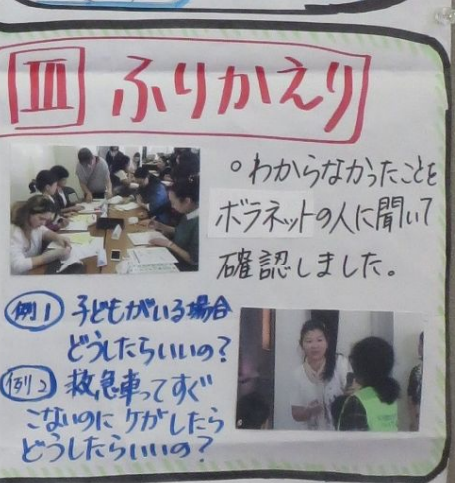 Ⅲ ふりかえり
○わからなかったことを
ボラネットの人に聞いて
確認しました。
例1 子どもがいる場合
どうしたらいいの？
例2 救急車ってすぐ
こないのにケガしたら
どうしたらいいの？